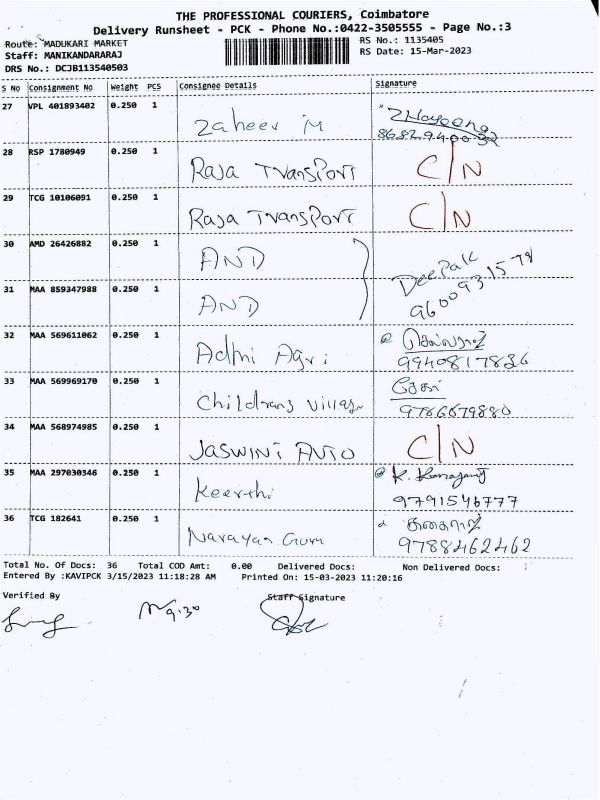 THE PROFESSIONAL COURIERS, Coimbatore
Delivery Runsheet - PCK - Phone No.:0422-3505555 - Page No.:3
Route: MADUKARI MARKET
RS No.: 1135405
Staff: MANIKANDARARAJ
RS Date: 15-Mar-2023
DRS No.: DCJB113540503
S No Consignment No Weight PCS Consignee Details Signature
27 VPL 401893402 0.250 1 Zaheer M
28 RSP 1780949 0.250 1 Raja Transport C/N
29 TCG 10106091 0.250 1 Raja Transport C/N
30 AMD 26426882 0.250 1 AND
31 MAA 859347988 0.250 1 AND
Deepak
9600931578
32 MAA 569611062 0.250 1 Adhi Agri
9940817836
33 MAA 569969170 0.250 1 Childrans Village
9786679880
34 MAA 568974985 0.250 1 JASWINI AUTO C/N
35 MAA 297030346 0.250 1 Keerthi
9791546777
36 TCG 182641 0.250 1 Narayan Guru
9788462462
Total No. Of Docs: 36 Total COD Amt: 0.00 Delivered Docs: Non Delivered Docs:
Entered By :KAVIPCK 3/15/2023 11:18:28 AM Printed On: 15-03-2023 11:20:16
Verified By Staff Signature
9.30